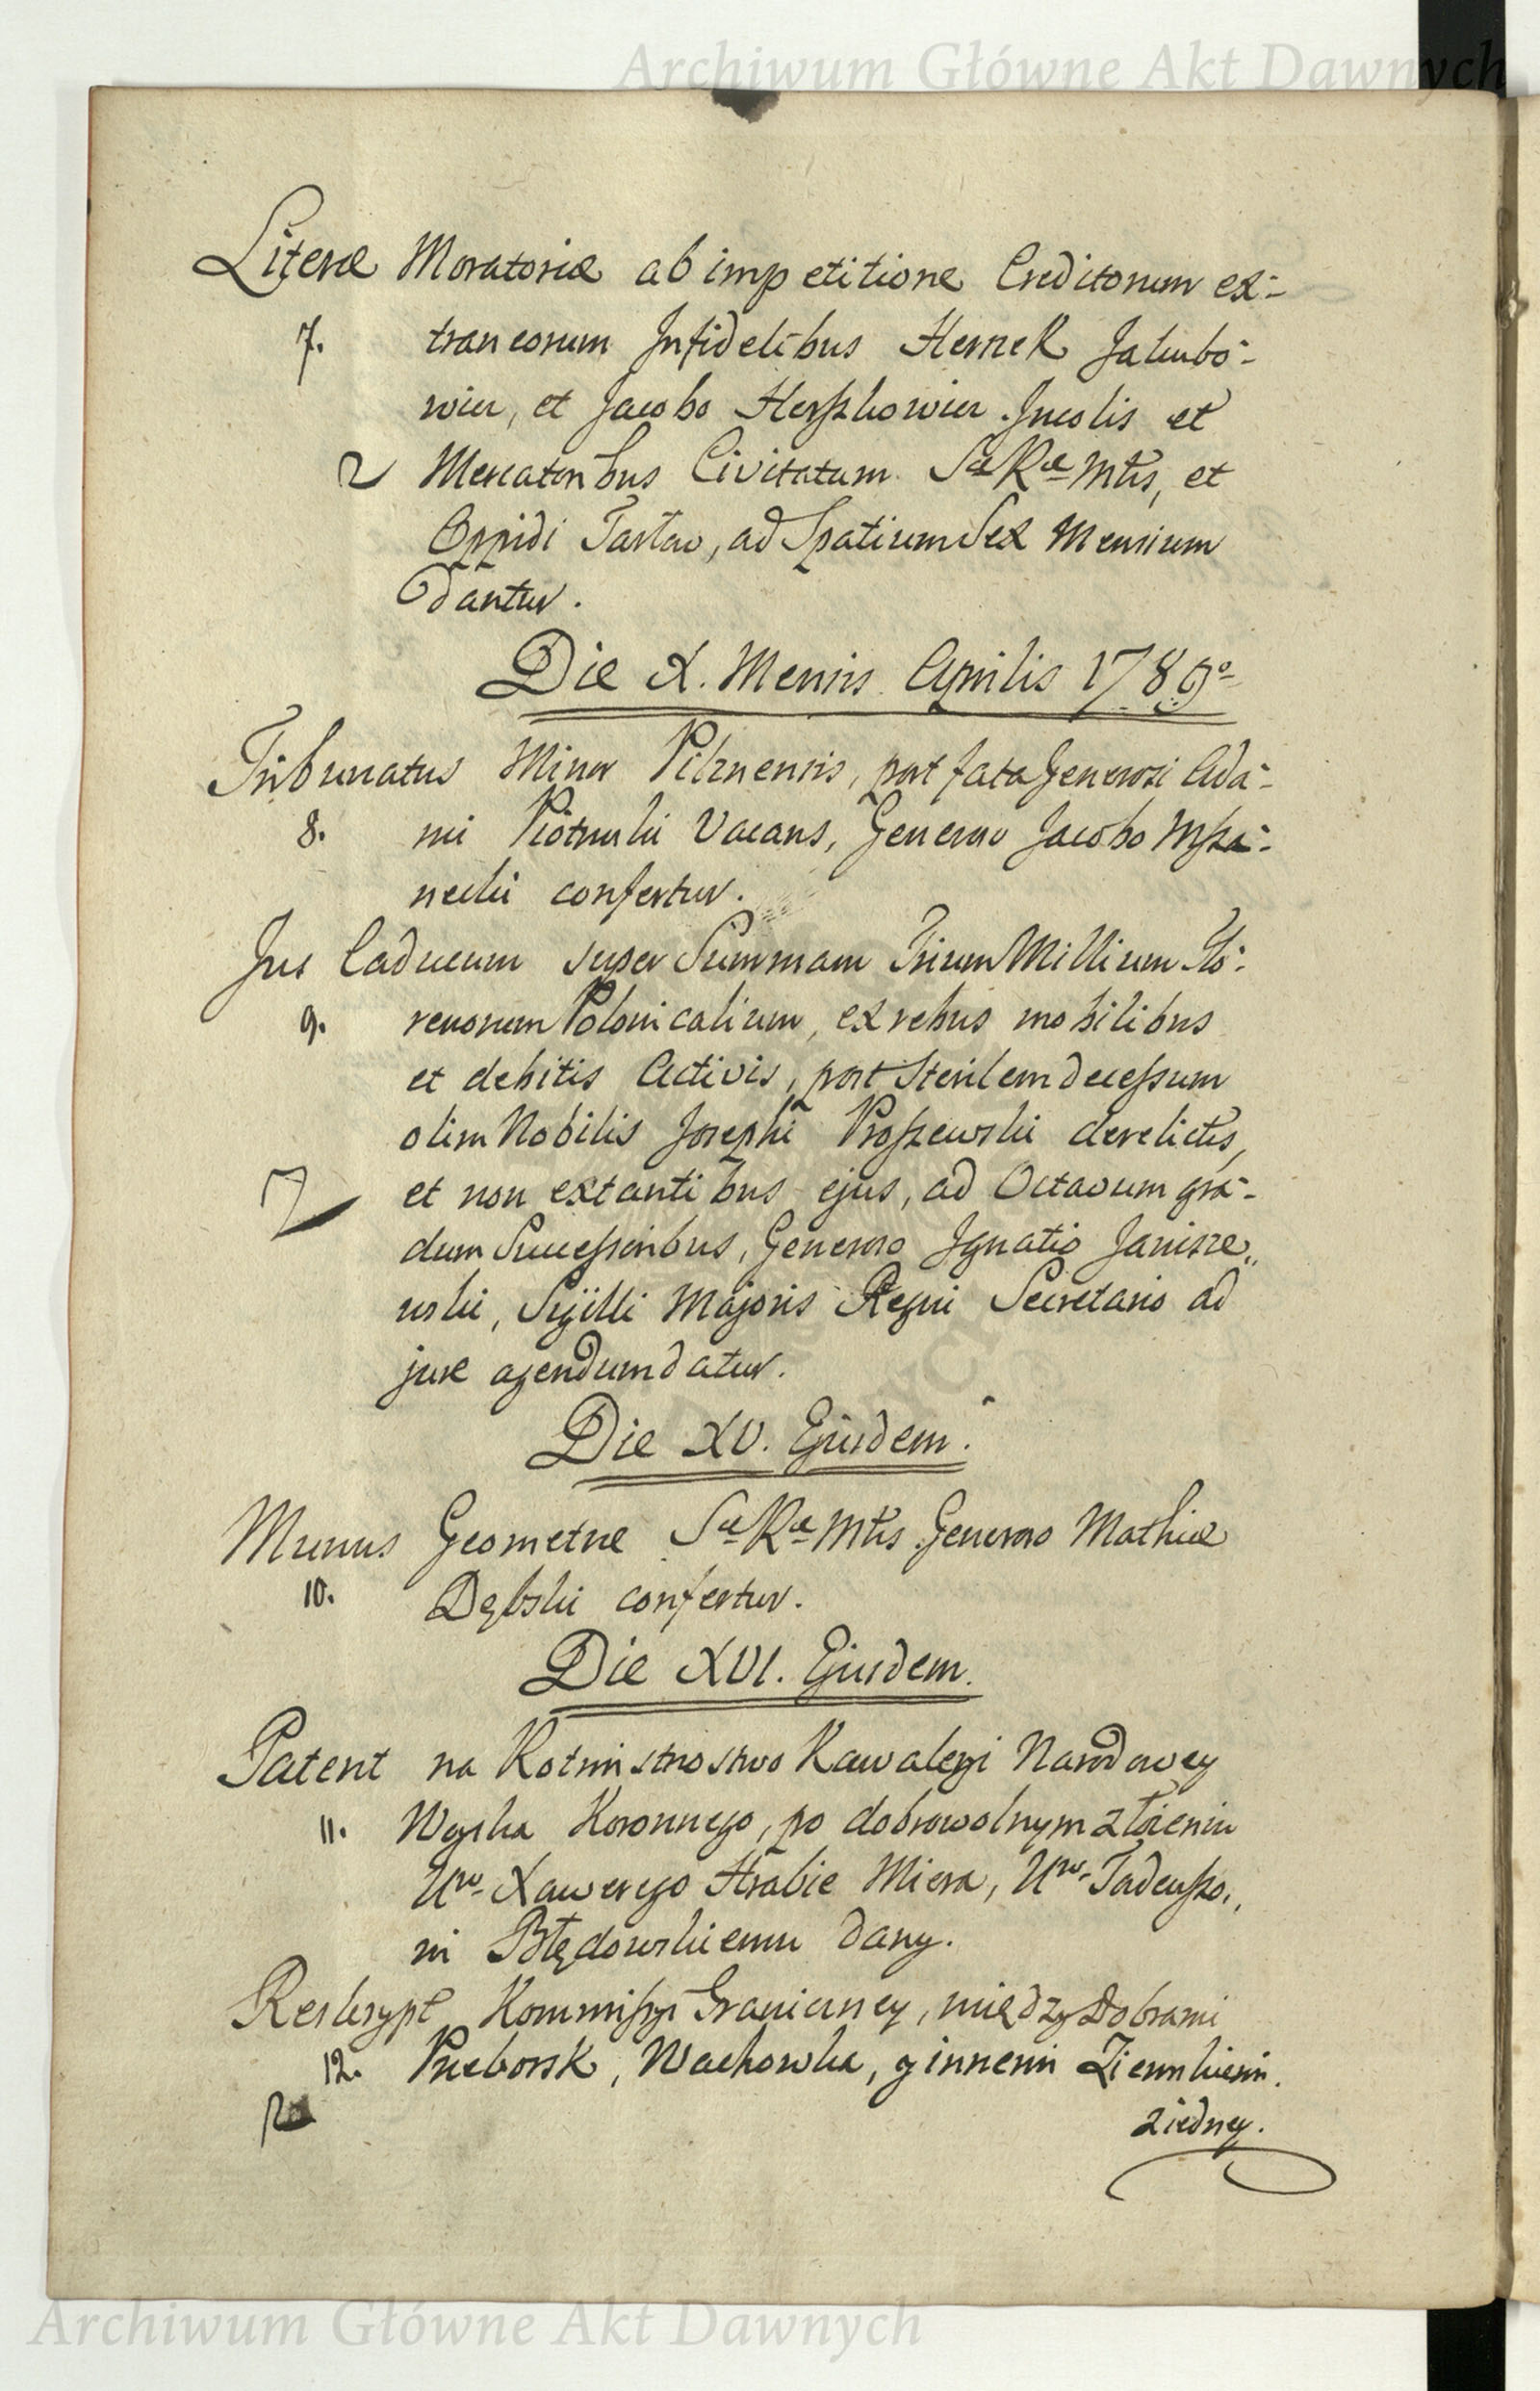 Archiwum Główne Akt Dawnych
Literæ Moratoriæ ab impetitione Creditorum ex:-
7. traneorum Infidelibus Herszek Jakubo:-
wicz, et Jacobo Herszkowicz Incolis et
Mercatoribus Civitatum Sæ Ræ Mtis, et
Oppidi Tartaw, ad Spatium Sex Mensium
dantur.
Die X. Mensis Aprilis 1789o
Tribunatus Minor Pilznensis, post fata Generosi Ada:-
8. mi Piotruski Vacans, Generoso Jacobo Msza:-
necki confertur.
Jus Caducum super Summam Trium Millium Flo:-
9. renorum Polonicalium, ex rebus mobilibus
et debitis Activis, post Sterilem decessum
olim Nobilis Josephi Proszewski derelictis,
et non extantibus ejus, ad Octavum gra:-
dum Successoribus, Generoso Ignatio Janisze„
wski, Sigilli Majoris Regni Secretario ad
jure agendum datur.
Die XV. Ejusdem.
Munus Geometræ Sæ Ræ Mtis Generoso Mathiæ
10. Dębski confertur.
Die XVI. Ejusdem.
Patent na Rotmistrzostwo Kawaleryi Narodowey
11. Woyska Koronnego, po dobrowolnym złożeniu
Uro Xawerego Hrabie Miera, Uro Tadeuszo„
wi Błędowskiemu dany.
Reskrypt Kommissyi Graniczney, między Dobrami
12. Przeborsk, Wachowka, y innemi Ziemskiemi.
ziedney.
Archiwum Główne Akt Dawnych